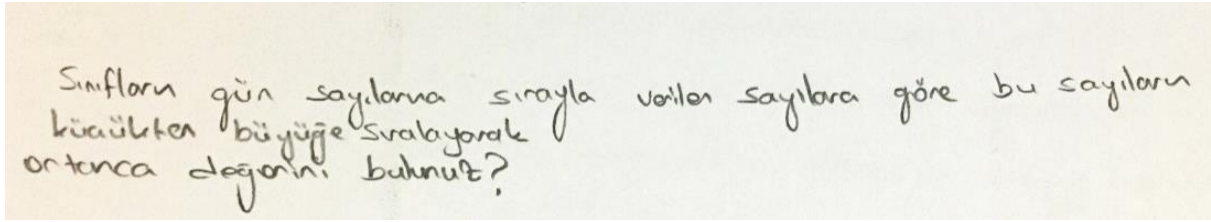 Sınıfların gün sayılarına sırayla verilen sayılara göre bu sayıların
küçükten büyüğe sıralayarak
ortanca değerini bulunuz?